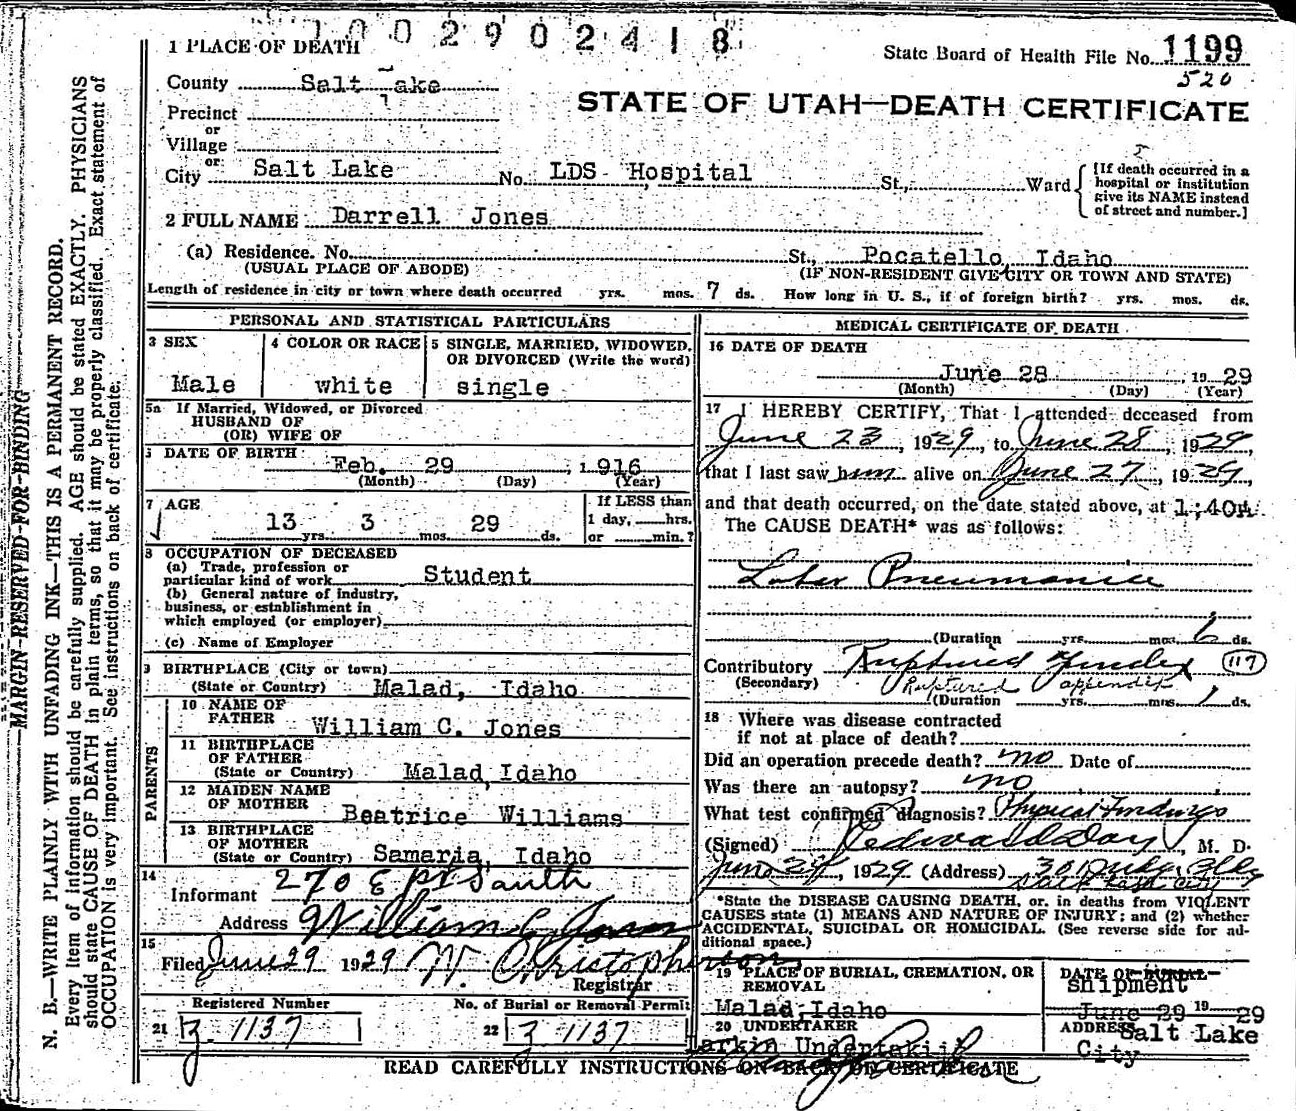 1002902418
1 PLACE OF DEATH
State Board of Health File No. 1199
520
County Salt Lake
STATE OF UTAH—DEATH CERTIFICATE
Precinct
or
Village
or
City Salt Lake No. LDS Hospital St., Ward
[If death occurred in a
hospital or institution
give its NAME instead
of street and number.]
2 FULL NAME Darrell Jones
(a) Residence. No. St., Pocatello, Idaho
(USUAL PLACE OF ABODE) (IF NON-RESIDENT GIVE CITY OR TOWN AND STATE)
Length of residence in city or town where death occurred yrs. mos. 7 ds. How long in U. S., if of foreign birth? yrs. mos. ds.
PERSONAL AND STATISTICAL PARTICULARS
3 SEX
Male
4 COLOR OR RACE
white
5 SINGLE, MARRIED, WIDOWED,
OR DIVORCED (Write the word)
single
5a If Married, Widowed, or Divorced
HUSBAND OF
(OR) WIFE OF
6 DATE OF BIRTH
Feb. 29, 1916
(Month) (Day) (Year)
7 AGE
13 yrs. 3 mos. 29 ds.
If LESS than
1 day, hrs.
or min.?
8 OCCUPATION OF DECEASED
(a) Trade, profession or
particular kind of work Student
(b) General nature of industry,
business, or establishment in
which employed (or employer)
(c) Name of Employer
9 BIRTHPLACE (City or town)
(State or Country) Malad, Idaho
PARENTS
10 NAME OF
FATHER William C. Jones
11 BIRTHPLACE
OF FATHER
(State or Country) Malad, Idaho
12 MAIDEN NAME
OF MOTHER Beatrice Williams
13 BIRTHPLACE
OF MOTHER
(State or Country) Samaria, Idaho
14
Informant 270 E South
Address William C Jones
15
Filed June 29 1929 W. Christopherson
Registrar
Registered Number
21 1137
No. of Burial or Removal Permit
22 1137
MEDICAL CERTIFICATE OF DEATH
16 DATE OF DEATH
June 28, 1929
(Month) (Day) (Year)
17 I HEREBY CERTIFY, That I attended deceased from
June 23, 1929, to June 28, 1929,
that I last saw him alive on June 27, 1929,
and that death occurred, on the date stated above, at 1:40A.
The CAUSE DEATH* was as follows:
Lobar Pneumonia
(Duration yrs. mos. 6 ds.
Contributory Ruptured Appendix 117
(Secondary) Ruptured appendix
(Duration yrs. mos. 1 ds.
18 Where was disease contracted
if not at place of death?
Did an operation precede death? no Date of
Was there an autopsy? no
What test confirmed diagnosis? Physical Findings
(Signed) Edward Day, M. D.
June 29, 1929 (Address) 301 Bldg
Salt Lake City
*State the DISEASE CAUSING DEATH, or, in deaths from VIOLENT
CAUSES state (1) MEANS AND NATURE OF INJURY; and (2) whether
ACCIDENTAL, SUICIDAL OR HOMICIDAL. (See reverse side for ad-
ditional space.)
19 PLACE OF BURIAL, CREMATION, OR
REMOVAL
Malad, Idaho
DATE OF BURIAL
shipment
June 29 1929
20 UNDERTAKER
Larkin
ADDRESS
Salt Lake
City
READ CAREFULLY INSTRUCTIONS ON BACK OF CERTIFICATE
MARGIN RESERVED FOR BINDING
N. B.—WRITE PLAINLY WITH UNFADING INK—THIS IS A PERMANENT RECORD.
Every item of information should be carefully supplied. AGE should be stated EXACTLY. PHYSICIANS
should state CAUSE OF DEATH in plain terms, so that it may be properly classified. Exact statement of
OCCUPATION is very important. See instructions on back of certificate.